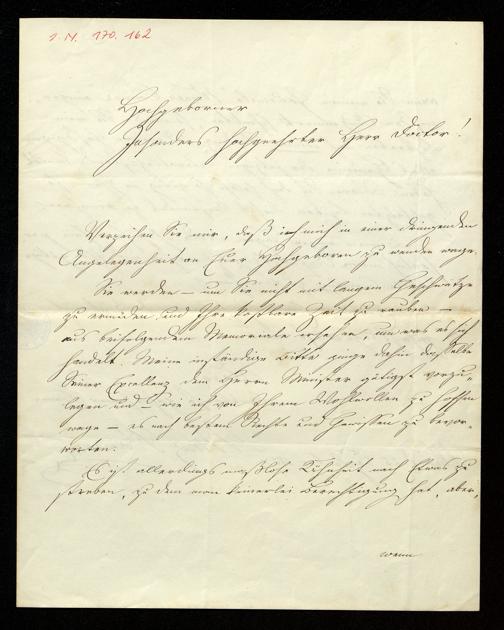 I. N. 170.162
Hochgeborner
Insonders hochgeehrter Herr Doctor!
Verzeihen Sie mir, daß ich mich in einer dringenden
Angelegenheit an Euer Hochgeboren zu wenden wage.
Sie werden – um Sie nicht mit langem Geschwätze
zu ermüden und Ihre kostbare Zeit zu rauben –
aus beifolgendem Memoriale ersehen, um was es sich
handelt. Meine inständige Bitte ginge dahin dasselbe
Seiner Excellenz dem Herrn Minister gütigst vorzu-
legen und – wie ich von Ihrem Wohlwollen zu hoffen
wage – es nach bestem Rechte und Gewissen zu bevor-
worten.
Es ist allerdings maßlose Kühnheit nach Etwas zu
streben, zu dem man keinerlei Berechtigung hat, aber,
wenn